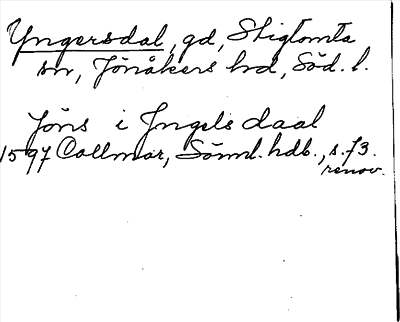 Yngersdal, gd, Stigtomta
sn, Jönåkers hd, Söd. l.
Jöns i Jngels daal
1597 Callmar, Sönnl. hdb., s. 73.
renov.